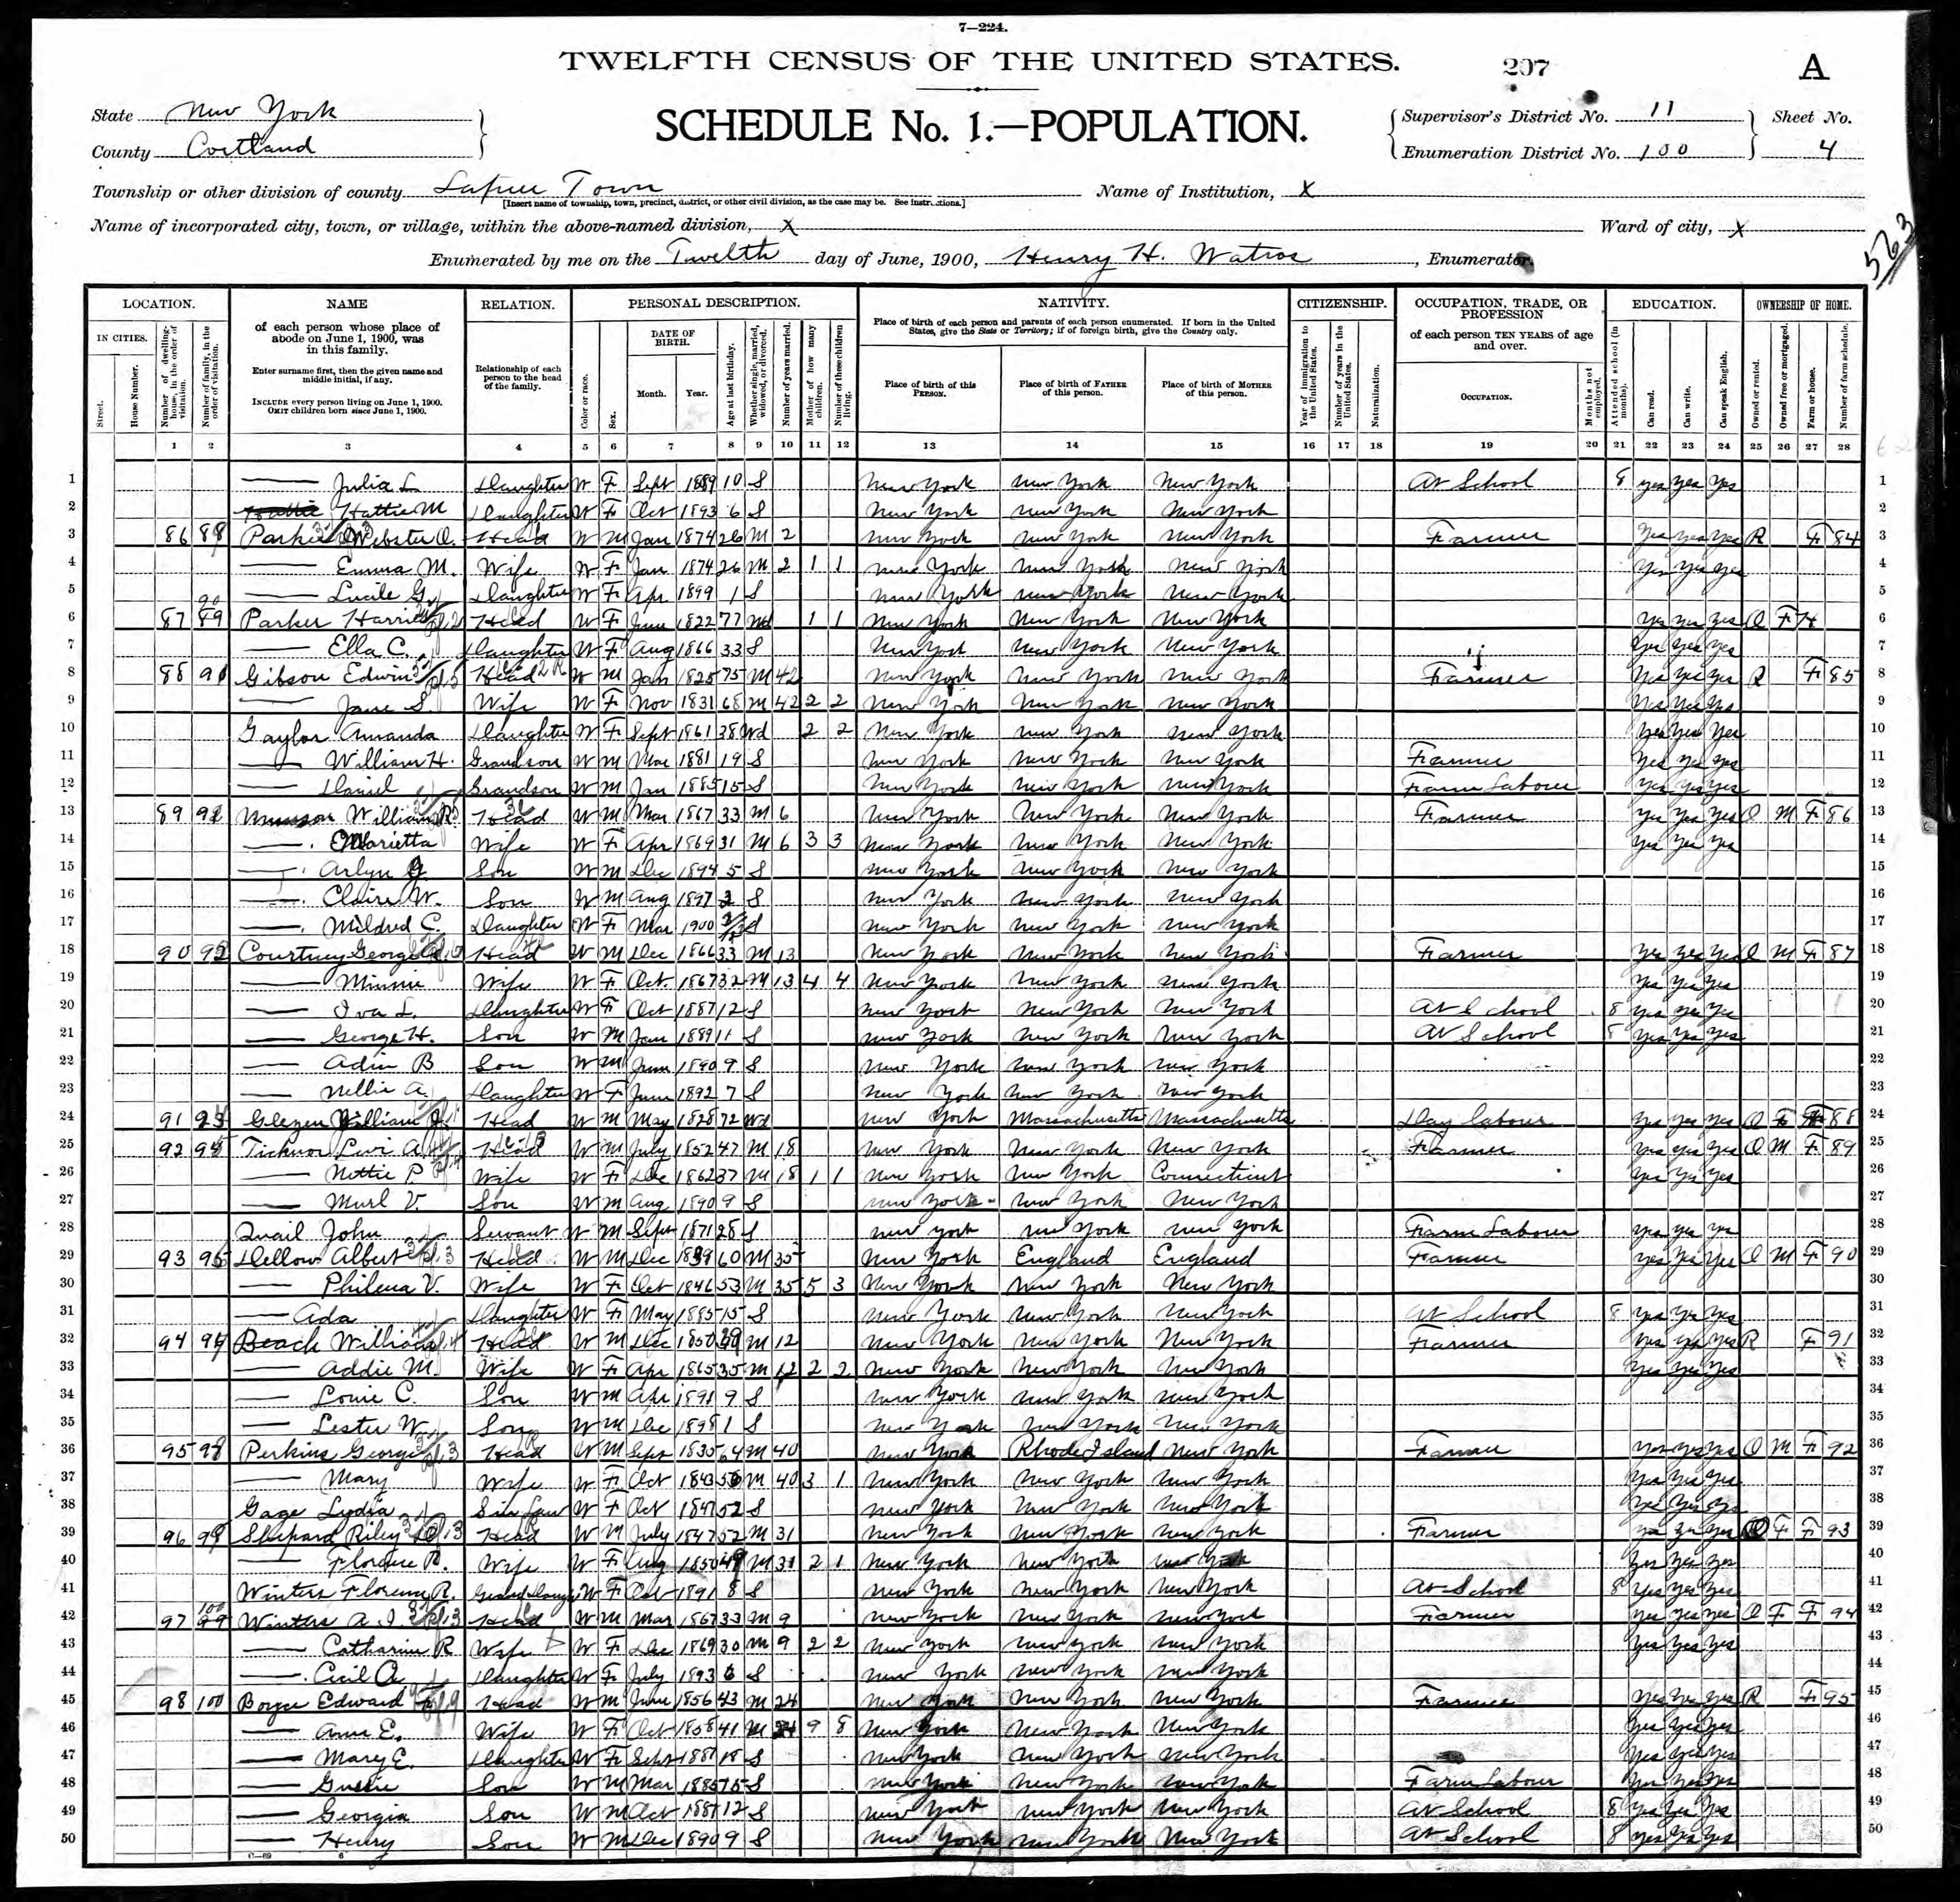 7—224.
TWELFTH CENSUS OF THE UNITED STATES.
207
A
State New York
County Cortland
SCHEDULE No. 1.—POPULATION.
Supervisor's District No. 11
Enumeration District No. 100
Sheet No.
4
Township or other division of county Town
[Insert name of township, town, precinct, district, or other civil division, as the case may be. See instructions.]
Name of Institution, X
Name of incorporated city, town, or village, within the above-named division, X
Ward of city, X
Enumerated by me on the Twelth day of June, 1900, Henry H. Watros, Enumerator.
563
LOCATION. NAME RELATION. PERSONAL DESCRIPTION. NATIVITY. CITIZENSHIP. OCCUPATION, TRADE, OR PROFESSION EDUCATION. OWNERSHIP OF HOME.
IN CITIES.
Street.
House Number.
Number of dwelling-house, in the order of visitation.
Number of family, in the order of visitation.
of each person whose place of abode on June 1, 1900, was in this family.
Enter surname first, then the given name and middle initial, if any.
INCLUDE every person living on June 1, 1900.
OMIT children born since June 1, 1900.
Relationship of each person to the head of the family.
Color or race.
Sex.
DATE OF BIRTH.
Month.
Year.
Age at last birthday.
Whether single, married, widowed, or divorced.
Number of years married.
Mother of how many children.
Number of these children living.
Place of birth of each person and parents of each person enumerated. If born in the United States, give the State or Territory; if of foreign birth, give the Country only.
Place of birth of this PERSON.
Place of birth of FATHER of this person.
Place of birth of MOTHER of this person.
Year of immigration to the United States.
Number of years in the United States.
Naturalization.
of each person TEN YEARS of age and over.
OCCUPATION.
Months not employed.
Attended school (in months).
Can read.
Can write.
Can speak English.
Owned or rented.
Owned free or mortgaged.
Farm or house.
Number of farm schedule.
1 2 3 4 5 6 7 8 9 10 11 12 13 14 15 16 17 18 19 20 21 22 23 24 25 26 27 28
1 — Julia L Daughter W F Sept 1889 10 S New York New York New York At School 8 yes yes yes 1
2 Hattie M Daughter W F Oct 1893 6 S New York New York New York 2
3 86 Webster O. Head W M Jan 1874 26 M 2 New York New York New York Farmer yes yes yes R F 84 3
4 — Emma M. Wife W F Jan 1874 26 M 2 1 1 New York New York New York yes yes yes 4
5 — Lucile G Daughter W F Apr 1899 1 S New York New York New York 5
6 87 Parker Head W F June 1822 77 Wd 1 1 New York New York New York yes yes yes O F H 6
7 — Ella C. Daughter W F Aug 1866 33 S New York New York New York yes yes yes 7
8 88 Gibson Edwin Head W M Jan 1825 75 M 42 New York New York New York Farmer yes yes yes R F 85 8
9 — Jane S. Wife W F Nov 1831 68 M 42 2 2 New York New York New York yes yes yes 9
10 Gaylor Amanda Daughter W F Sept 1861 38 Wd 2 2 New York New York New York yes yes yes 10
11 — William H. Grandson W M Mar 1881 19 S New York New York New York Farmer yes yes yes 11
12 — Daniel Grandson W M Jan 1885 15 S New York New York New York Farm Labour yes yes yes 12
13 89 Munson William R. Head W M Mar 1867 33 M 6 New York New York New York Farmer yes yes yes O M F 86 13
14 — Marietta Wife W F Apr 1869 31 M 6 3 3 New York New York New York yes yes yes 14
15 — Arlyn G Son W M Dec 1894 5 S New York New York New York 15
16 — Claire W. Son W M Aug 1897 2 S New York New York New York 16
17 — Mildred C. Daughter W F Mar 1900 S New York New York New York 17
18 90 Courtney George Head W M Dec 1866 33 M 13 New York New York New York Farmer yes yes yes O M F 87 18
19 — Minnie Wife W F Oct. 1867 32 M 13 4 4 New York New York New York yes yes yes 19
20 — Iva L. Daughter W F Oct 1887 12 S New York New York New York At School 8 yes yes yes 20
21 — George H. Son W M Jan 1889 11 S New York New York New York At School 8 yes yes yes 21
22 — Adin B Son W M June 1890 9 S New York New York New York 22
23 — Nellie A. Daughter W F June 1892 7 S New York New York New York 23
24 91 Glezen William Head W M May 1828 72 Wd New York Massachusetts Massachusetts Day labour yes yes yes O F 88 24
25 92 Ticknor Levi A Head W M July 1852 47 M 18 New York New York New York Farmer yes yes yes O M F 89 25
26 — Nettie P Wife W F Dec 1862 37 M 18 1 1 New York New York Connecticut yes yes yes 26
27 — Murl V. Son W M Aug 1890 9 S New York New York New York 27
28 Quail John Servant W M Sept 1871 28 S New York New York New York Farm Labour yes yes yes 28
29 93 Dellow Albert Head W M Dec 1839 60 M 35 New York England England Farmer yes yes yes O M F 90 29
30 — Philena V. Wife W F Oct 1846 53 M 35 5 3 New York New York New York 30
31 — Ada Daughter W F May 1885 15 S New York New York New York At School 8 yes yes yes 31
32 94 Beach William Head W M Dec 1850 49 M 12 New York New York New York Farmer yes yes yes R F 91 32
33 — Addie M. Wife W F Apr 1865 35 M 12 2 2 New York New York New York yes yes yes 33
34 — Louie C. Son W M Apr 1891 9 S New York New York New York 34
35 — Lester W Son W M Dec 1898 1 S New York New York New York 35
36 95 Perkins George Head W M Sept 1835 64 M 40 New York Rhode Island New York Farmer yes yes yes O M F 92 36
37 — Mary Wife W F Oct 1843 56 M 40 3 1 New York New York New York yes yes yes 37
38 Gage Lydia W F Oct 1847 52 S New York New York New York yes yes yes 38
39 96 Shepard Riley Head W M July 1847 52 M 31 New York New York New York Farmer yes yes yes O F F 93 39
40 — Florence R. Wife W F Aug 1850 49 M 31 2 1 New York New York New York yes yes yes 40
41 Winters Florence R. W F Oct 1891 8 S New York New York New York At School 8 yes yes yes 41
42 97 Winters A. Head W M Mar 1867 33 M 9 New York New York New York Farmer yes yes yes O F F 94 42
43 — Catharine R Wife W F Dec 1869 30 M 9 2 2 New York New York New York yes yes yes 43
44 — Cecil A. Daughter W F July 1893 6 S New York New York New York 44
45 98 100 Boyce Edward Head W M June 1856 43 M 24 New York New York New York Farmer yes yes yes R F 95 45
46 — Ann E. Wife W F Oct 1858 41 M 24 9 8 New York New York New York yes yes yes 46
47 — Mary E. Daughter W F Sept 1881 18 S New York New York New York yes yes yes 47
48 — Gussie Son W M Mar 1885 15 S New York New York New York Farm Labour yes yes yes 48
49 — Georgia Son W M Oct 1887 12 S New York New York New York At School 8 yes yes yes 49
50 — Henry Son W M Dec 1890 9 S New York New York New York At School 8 yes yes yes 50